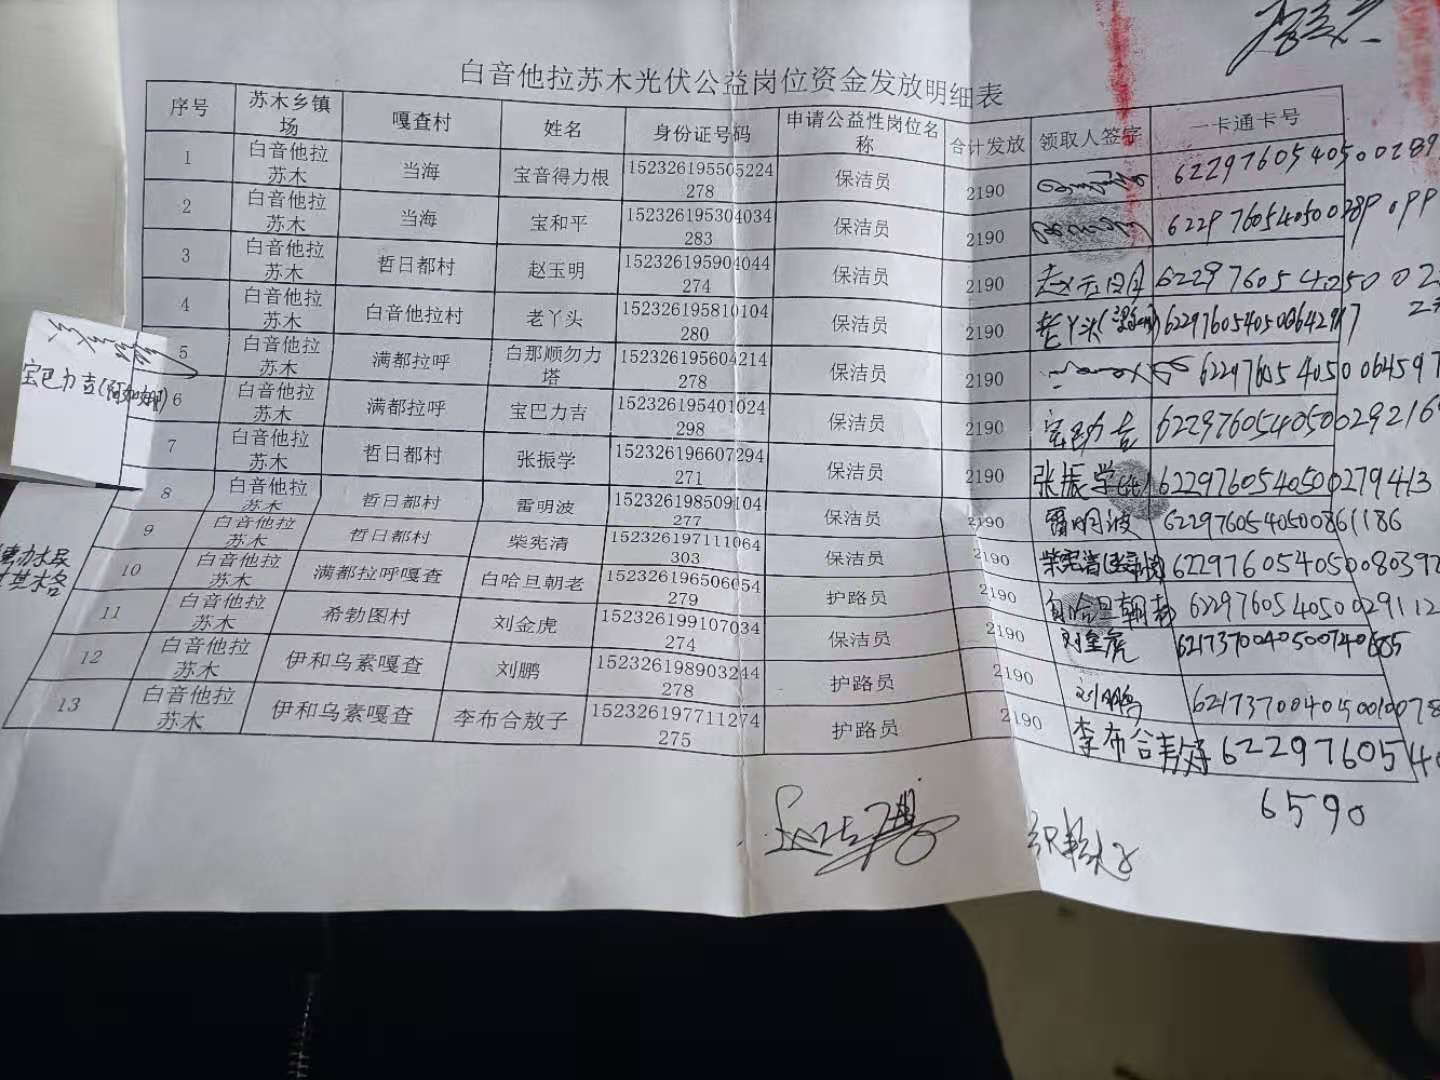 白音他拉苏木光伏公益岗位资金发放明细表
序号 苏木乡镇场 嘎查村 姓名 身份证号码 申请公益性岗位名称 合计发放 领取人签字 一卡通卡号
1 白音他拉苏木 当海 宝音得力根 152326195505224278 保洁员 2190 622976054050 0289
2 白音他拉苏木 当海 宝和平 152326195304034283 保洁员 2190
3 白音他拉苏木 哲日都村 赵玉明 152326195904044274 保洁员 2190 赵玉明 622976054250 02
4 白音他拉苏木 白音他拉村 老丫头 152326195810104280 保洁员 2190 老丫头
5 白音他拉苏木 满都拉呼 白那顺勿力塔 152326195604214278 保洁员 2190 622976054050064597
6 白音他拉苏木 满都拉呼 宝巴力吉 152326195401024298 保洁员 2190 宝巴力吉 622976054050029216
7 白音他拉苏木 哲日都村 张振学 152326196607294271 保洁员 2190 张振学 6229760540500279413
8 白音他拉苏木 哲日都村 雷明波 152326198509104277 保洁员 2190 雷明波 6229760540500861186
9 白音他拉苏木 哲日都村 柴宪清 152326197111064303 保洁员 2190 柴宪清 622976054050080397
10 白音他拉苏木 满都拉呼嘎查 白哈旦朝老 152326196506054279 护路员 2190 白哈旦朝老 622976054050029112
11 白音他拉苏木 希勃图村 刘金虎 152326199107034274 保洁员 2190 刘金虎 6217370040500740685
12 白音他拉苏木 伊和乌素嘎查 刘鹏 152326198903244278 护路员 2190 刘鹏
13 白音他拉苏木 伊和乌素嘎查 李布合敖子 152326197711274275 护路员 2190 李布合敖子 62297605 4
6590
宝巴力吉